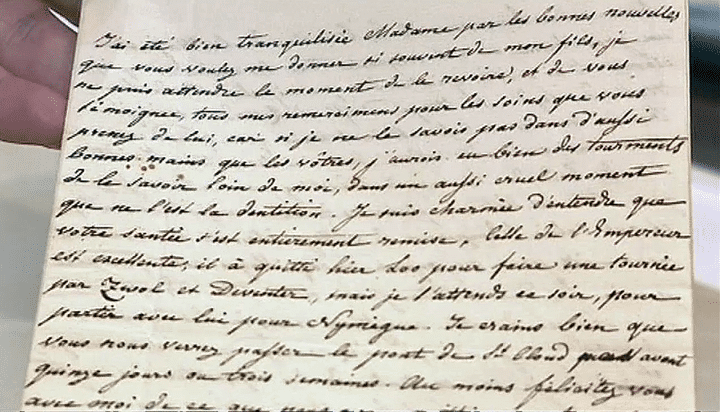 J'ai été bien tranquilisée Madame par les bonnes nouvelles
que vous voulez me donner si souvent de mon fils, je
ne puis attendre le moment de le revoire, et de vous
témoignée, tous mes remercimens pour les soins que vous
prenez de lui, car si je ne le savois pas dans d'aussi
bonnes mains que les vôtres, j'aurois eu bien des tourments
de le savoir loin de moi, dans un aussi cruel moment
que ne l'est la dentition. Je suis charmée d'entendre que
votre santée s'est entièrement remise, Celle de l'Empereur
est excellente, il à quitté hier Loo pour faire une tournée
par Zwol et Deventer, mais je l'attends ce soir, pour
partir avec lui pour Nymègue. Je crains bien que
vous nous verrez passer le pont de St Cloud avant
quinze jours ou trois semaines. Au moins félicitez vous
avec moi de ce que